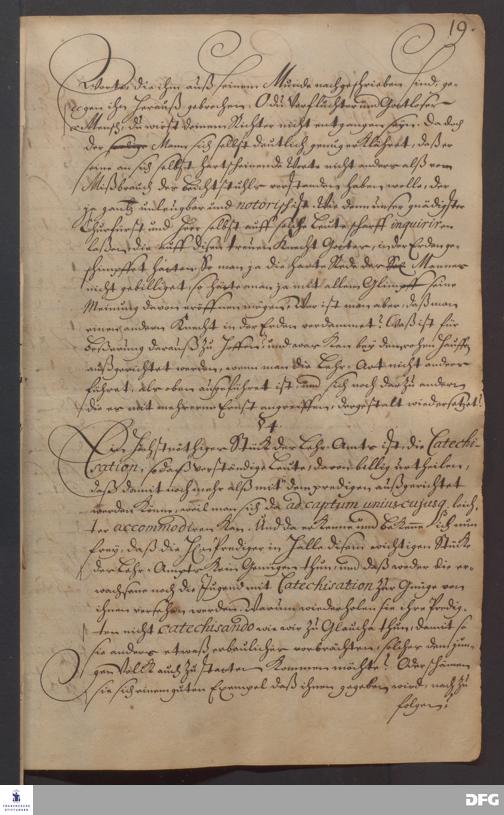 19.
Worte, die ihm auß seinem Munde nachgeschrieben sind, ge-
gen ihn herauß gebrochen: O du verfluchter und Gottloser
Mensch, du wirst deinem Richter nicht entgangen seyn. Da doch
der Mann sich selbst deutlich genug erklähret, daß er
seine an sich selbst hartscheinende Worte nicht anders alß vom
Mißbrauch der beichtstuhls verstanden haben wolle, der
ja gantz unleugbar und notorisch ist. Wie dann unser gnädigster
Churfürst und Herr selbst auff solche Leute scharff inquiriren
laßen, die auff disen treuen Knecht Gottes, in der Erden ge-
schimpffet hätten. So man ja die harte Rede des Mannes
nicht gebilliget, so hätte man ja mit allem Glimpff seine
Meinung davon eröffnen mögen. Wer ist man aber, daß man
einen andern Knecht in der Erden verdammet? Waß ist für
beßerung darauß zu hoffen? und was kan bey dem rohen Hauffen
außgerichtet werden, wenn man die Lehr-Art nicht anders
führet, als oben außgeführet ist, und sich noch darzu andern
die es mit mehrerm Ernst angreiffen, dergestalt wiedersetzet?
§ 4.
Ein höchstnöthiges Stück des Lehr-Amts ist, die Catechi-
sation, so daß verständige Leute, davon billig urtheilen,
daß damit noch mehr alß mit dem predigen außgerichtet
werden könne, weil man sich da ad captum unius cujusq. leich-
ter accommodiren kan. Und da er kenne und bekenne ich nun
frey, daß die HErrn Prediger in Halle disem wichtigen Stücke
des Lehr-Ampts kein Genügen thun, und daß weder die er-
wachsene noch die Jugend mit Catechisation zur Gnüge von
ihnen versehen werden. Warum wiederholen sie ihre Predig-
ten nicht catechisando wie wir zu Glaucha thun, damit so
sie anders etwaß erbauliches vorbrächten, solches dem jun-
gen Volck auch zu statten kommen möchte? Oder schämen
sie sich einem guten Exempel daß ihnen gegeben wird, nach zu
folgen?
FRANCKESCHE
STIFTUNGEN
DFG